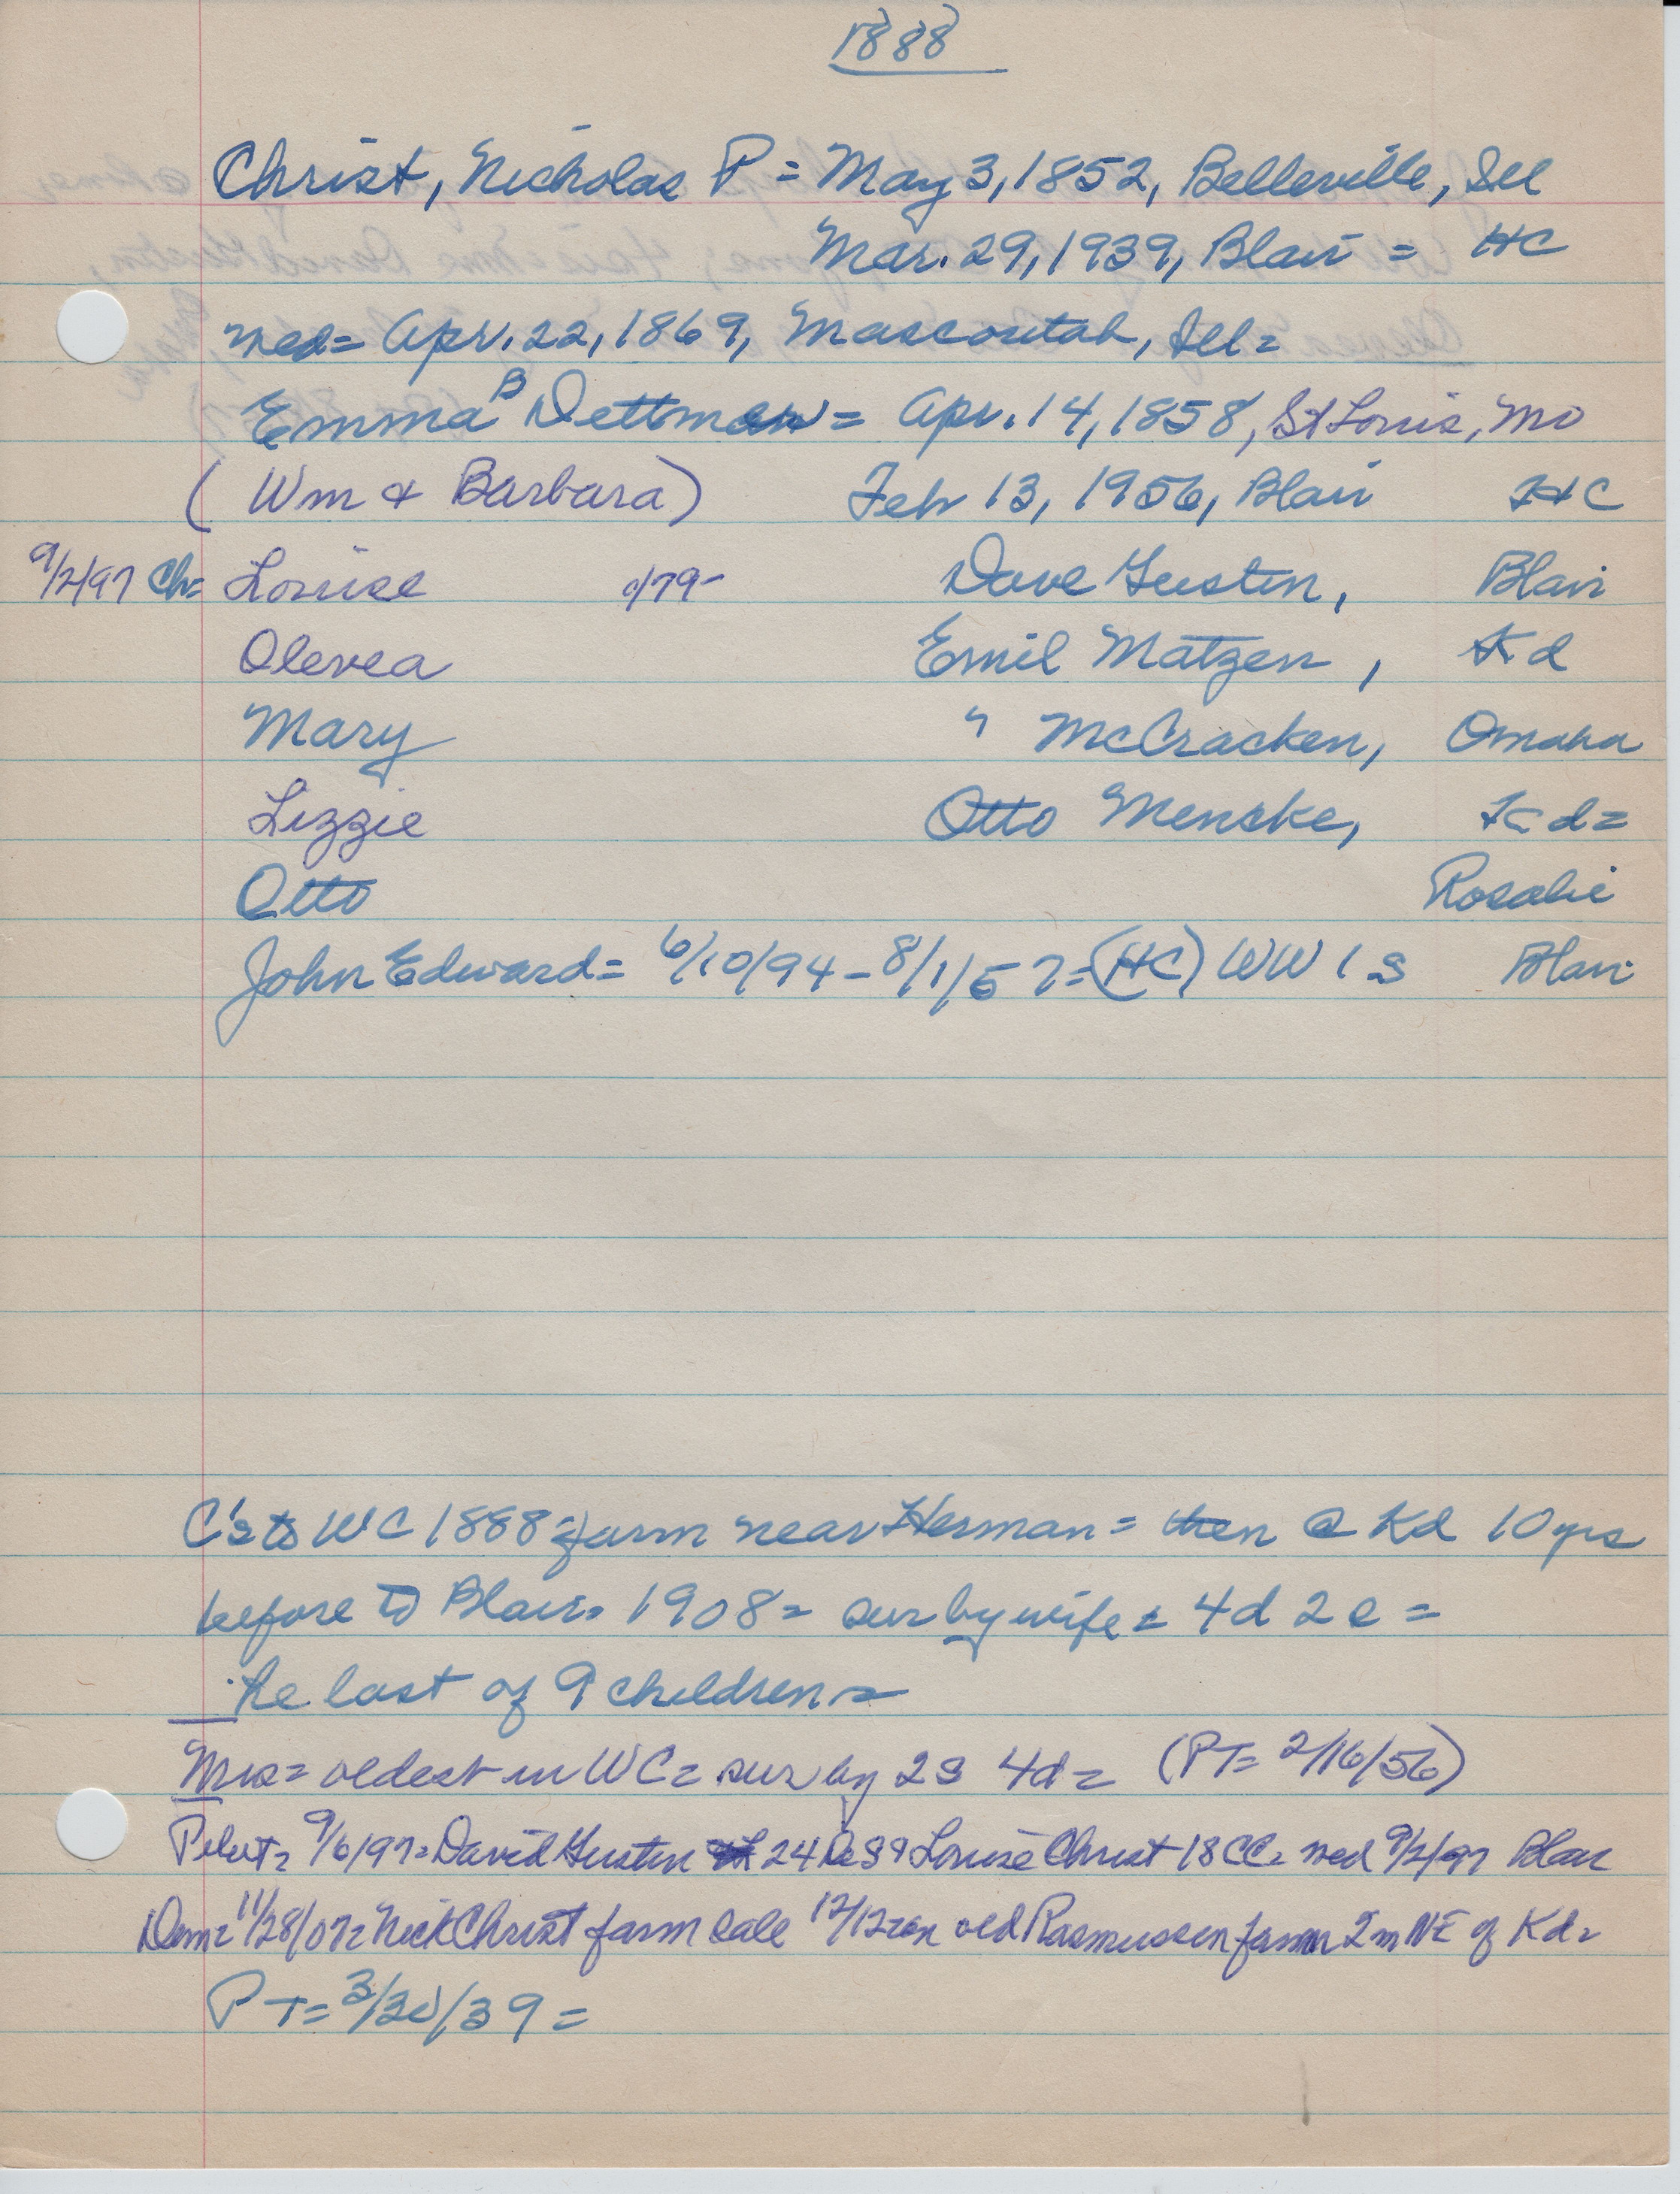 1888
Christ, Nicholas P = May 3, 1852, Belleville, Ill
Mar. 29, 1939, Blair = HC
med = Apr. 22, 1869, Mascoutah, Ill =
Emma B Dettman = Apr. 14, 1858, St Louis, Mo
(Wm & Barbara) Feb 13, 1956, Blair HC
9/2/97 Ch = Louise 1/79- Dave Gustin, Blair
Olevea Emil Matzen, Kd
Mary " McCracken, Omaha
Lizzie Otto Menske, Kd =
Otto Rosalie
John Edward = 6/10/94 - 8/1/57 = (HC) WW 1 S Blair
C's to WC 1888 = farm near Herman = then @ Kd 10 yrs
before to Blair = 1908 = sur by wife = 4d 2s =
he last of 9 children =
Mrs = oldest in WC = sur by 2s 4d = (PT = 2/16/56)
Pilot = 9/6/97 = David Gustin 24 & Louise Christ 18 CC = med 9/2/97 Blair
Dem = 11/28/07 = Nick Christ farm sale 12/12 = on old Rasmussen farm 2 m NE of Kd =
PT = 3/30/39 =